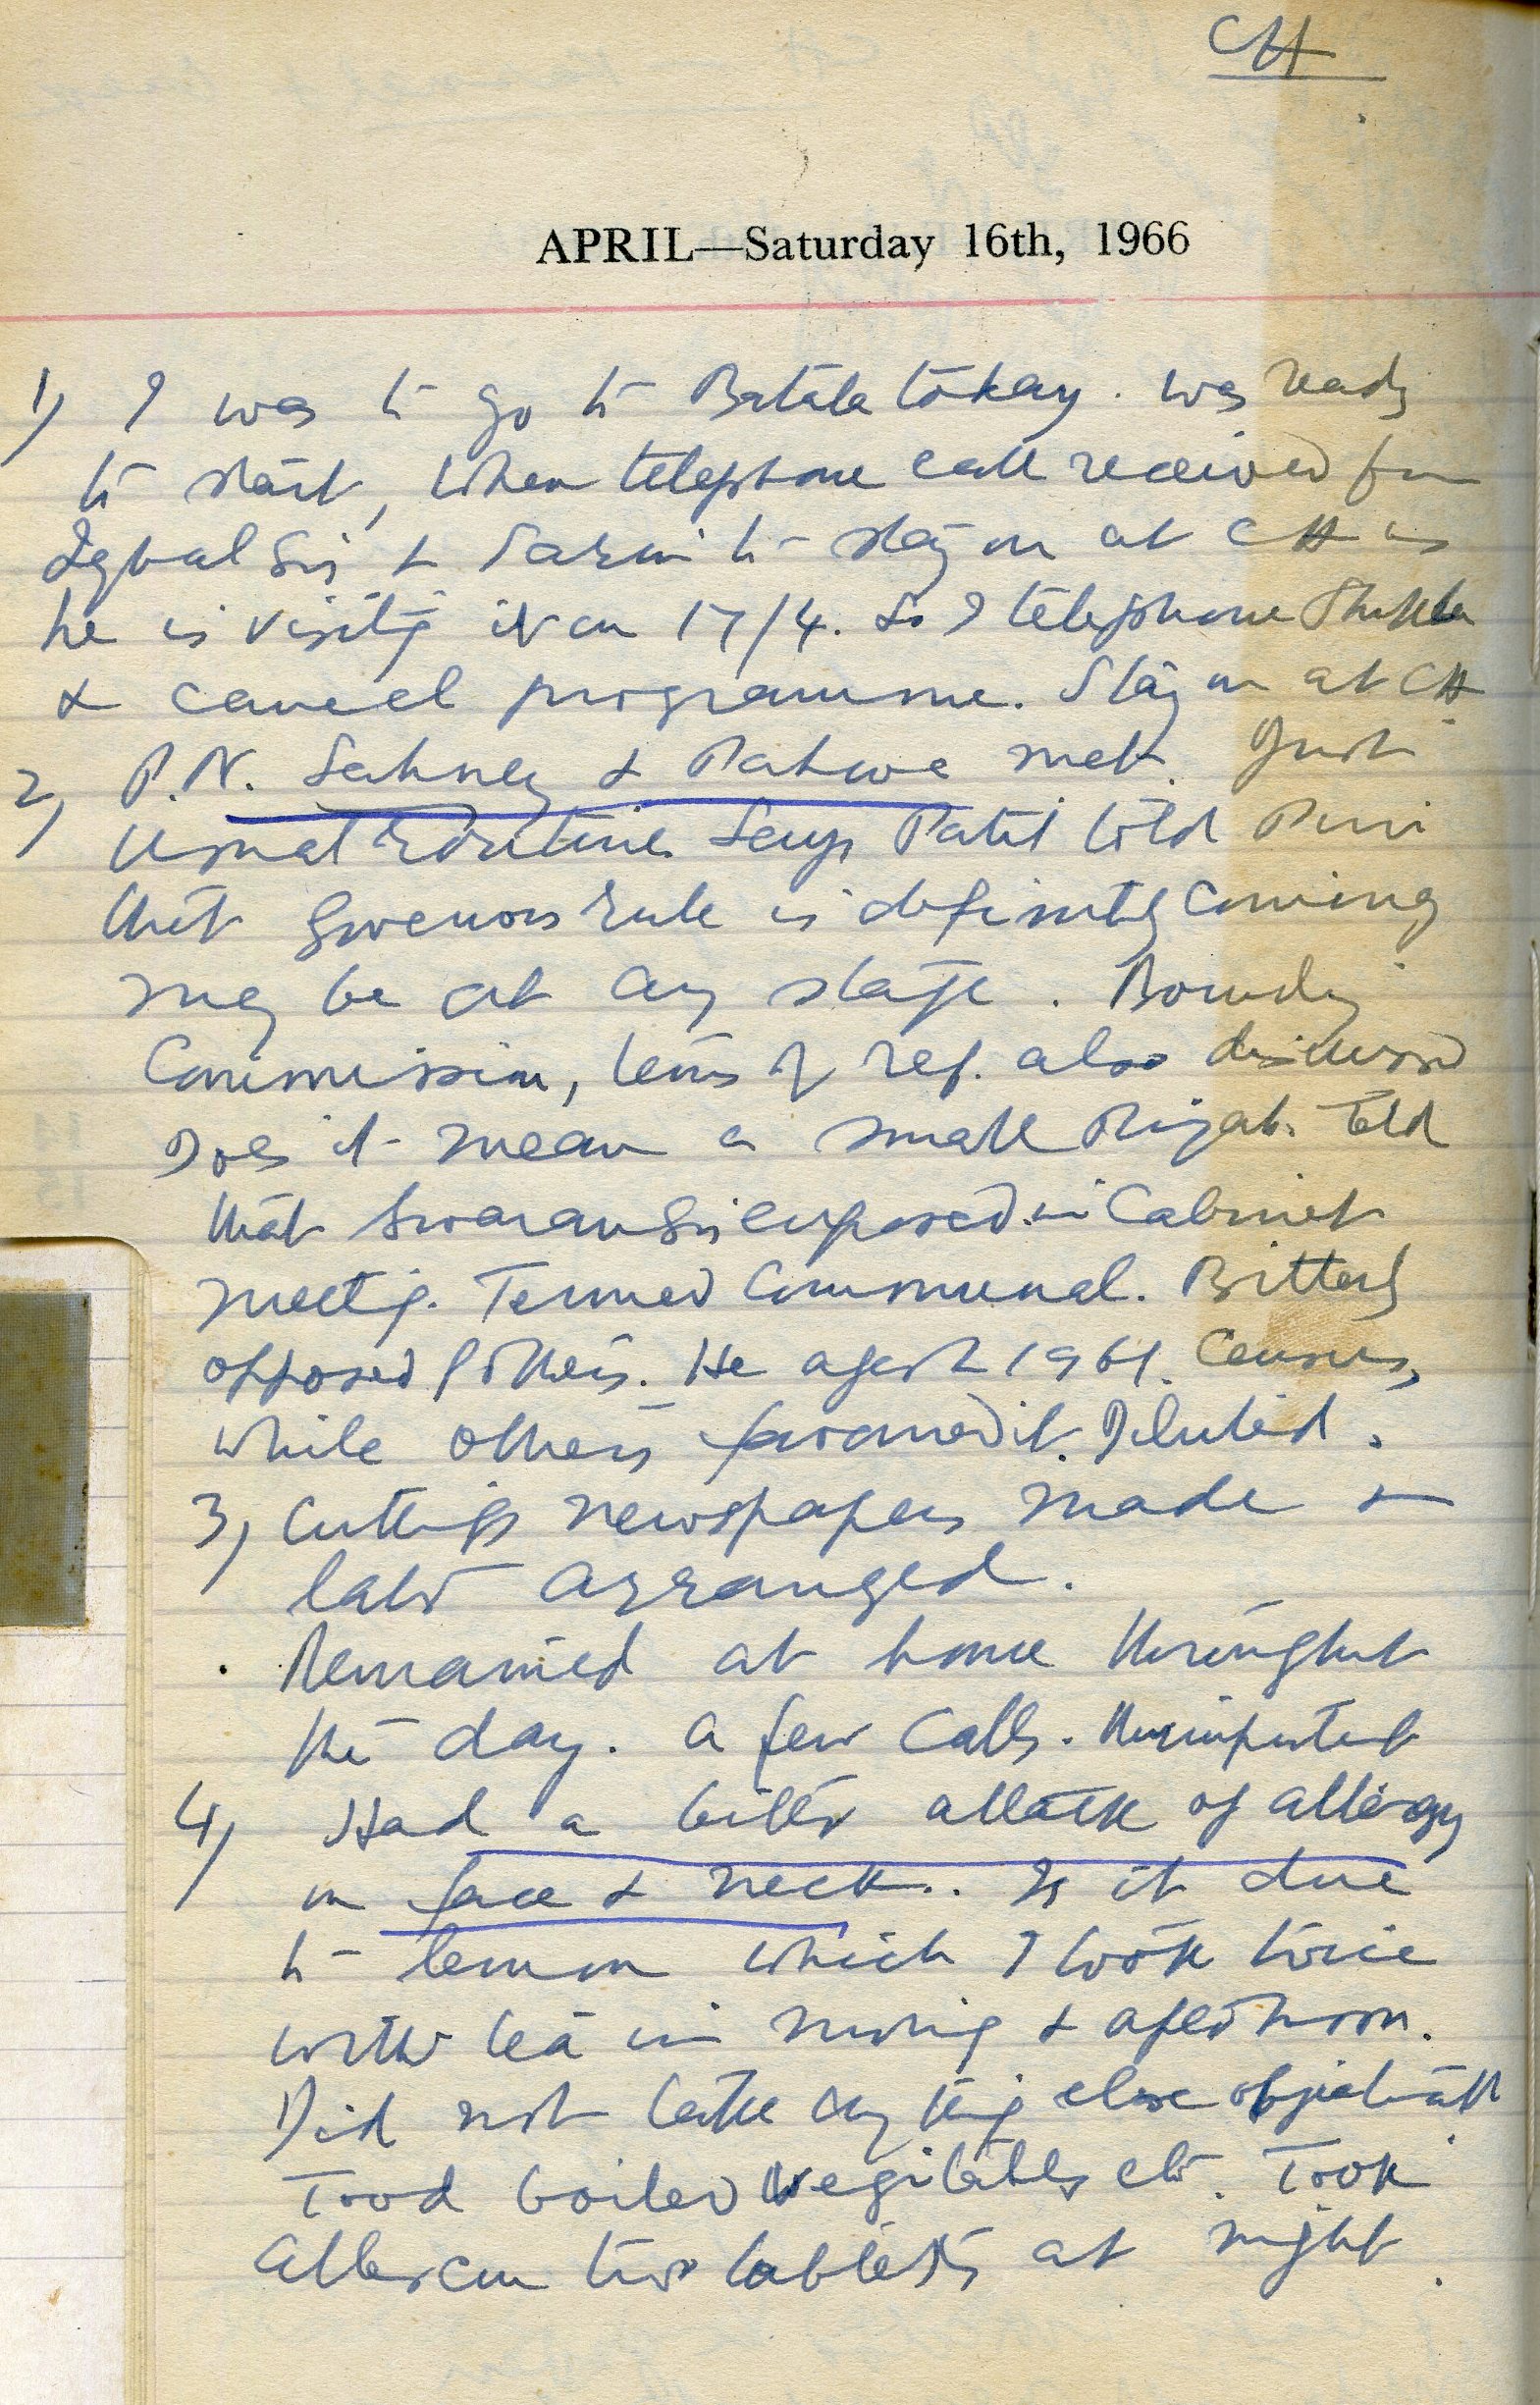 CH
APRIL—Saturday 16th, 1966
1) I was to go to Batala today. was ready
to start, when telephone call received from
Iqbal Si & to stay on at CH as
he is visitg it on 17/4. So I telephone Shukla
& cancel programme. Stay on at CH
2) P.N. Sahney & Pahwa met. Just
usual routine. Says Patil told Puri
that Governors rule is definitely coming
may be at any stage. Boundy
Commission, terms of ref. also discussed
Does it mean a small Punjab. Told
that Swaran Si exposed in Cabinet
meetig. Termed Communal. Bitterly
opposed others. He agst 1961. Census,
while others favoured it. Diluted.
3) Cuttings newspapers made &
later arranged.
Remained at home throughout
the day. A few calls. Unimportant
4) Had a bitter attack of allergy
on face & neck. Is it due
to lemon which I took twice
with tea in morning & afternoon.
Did not take any thing else
Food boiled vegitables etc. Took
two tablets at night.